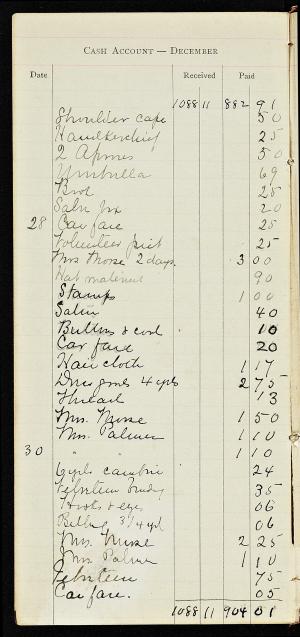 CASH ACCOUNT — DECEMBER
Date Received Paid
1088 11 882 91
Shoulder cape 50
Handkerchief 25
2 Aprons 50
Umbrella 69
25
20
28 Car fare 25
Volunteer 25
Mrs Morse 2 days. 3 00
Hat material 90
Stamps 1 00
Satin 40
Buttons & cord 10
Car fare 20
Hair cloth 1 17
Dress goods 4 yds 2 75
Thread 13
Mrs. Morse 1 50
Mrs. Palmer 1 10
30 " " 1 10
6 yds cambric 24
Velveteen 35
Hooks & eyes 06
Belting 3/4 yd 06
Mrs. Morse 2 25
Mrs. Palmer 1 10
Velveteen 75
Car fare. 05
1088 11 904 01